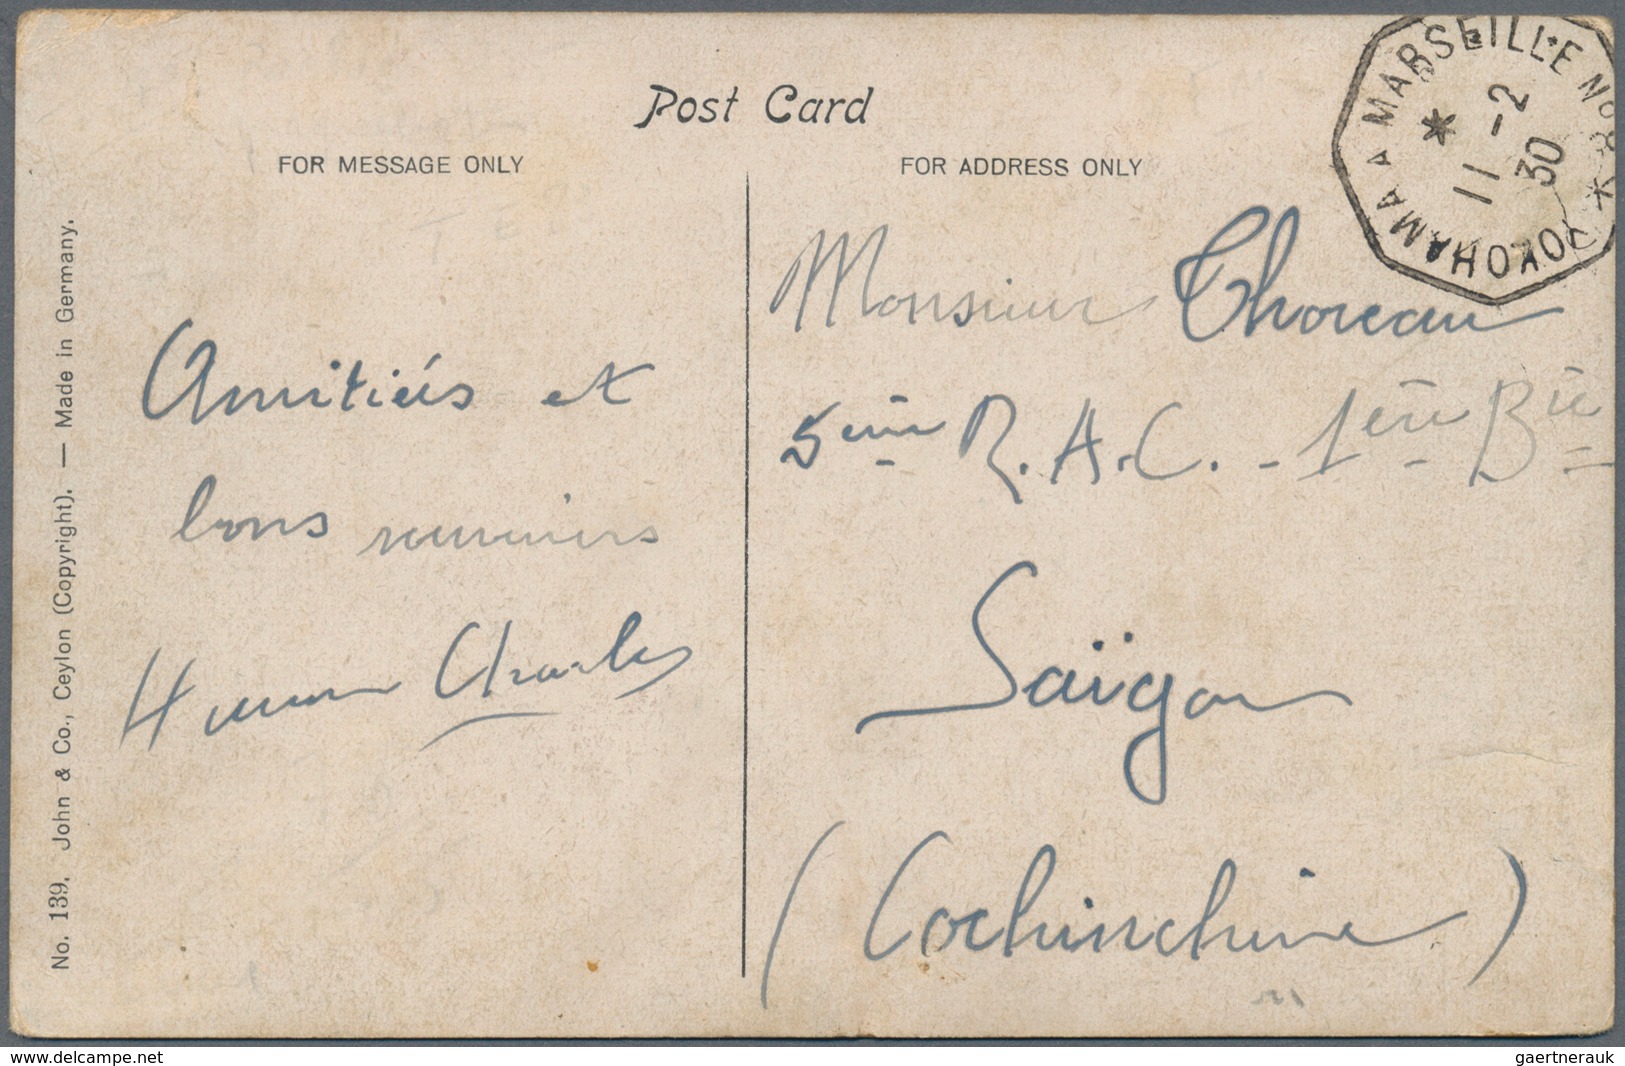 Post Card
FOR MESSAGE ONLY
FOR ADDRESS ONLY
YOKOHAMA A MARSEILLE Nº 8
11 -2
30
No. 139. John & Co., Ceylon (Copyright). — Made in Germany.
Amitiés et
bons
Charles
Monsieur Thoreau
5ème R.A.C. - 1ère Bie
Saïgon
(Cochinchine)
www.delcampe.net
gaertnerauk